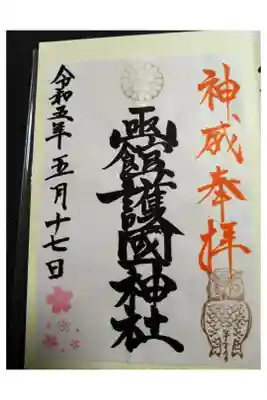 神威奉拝
凾館護國神社
令和五年五月十七日